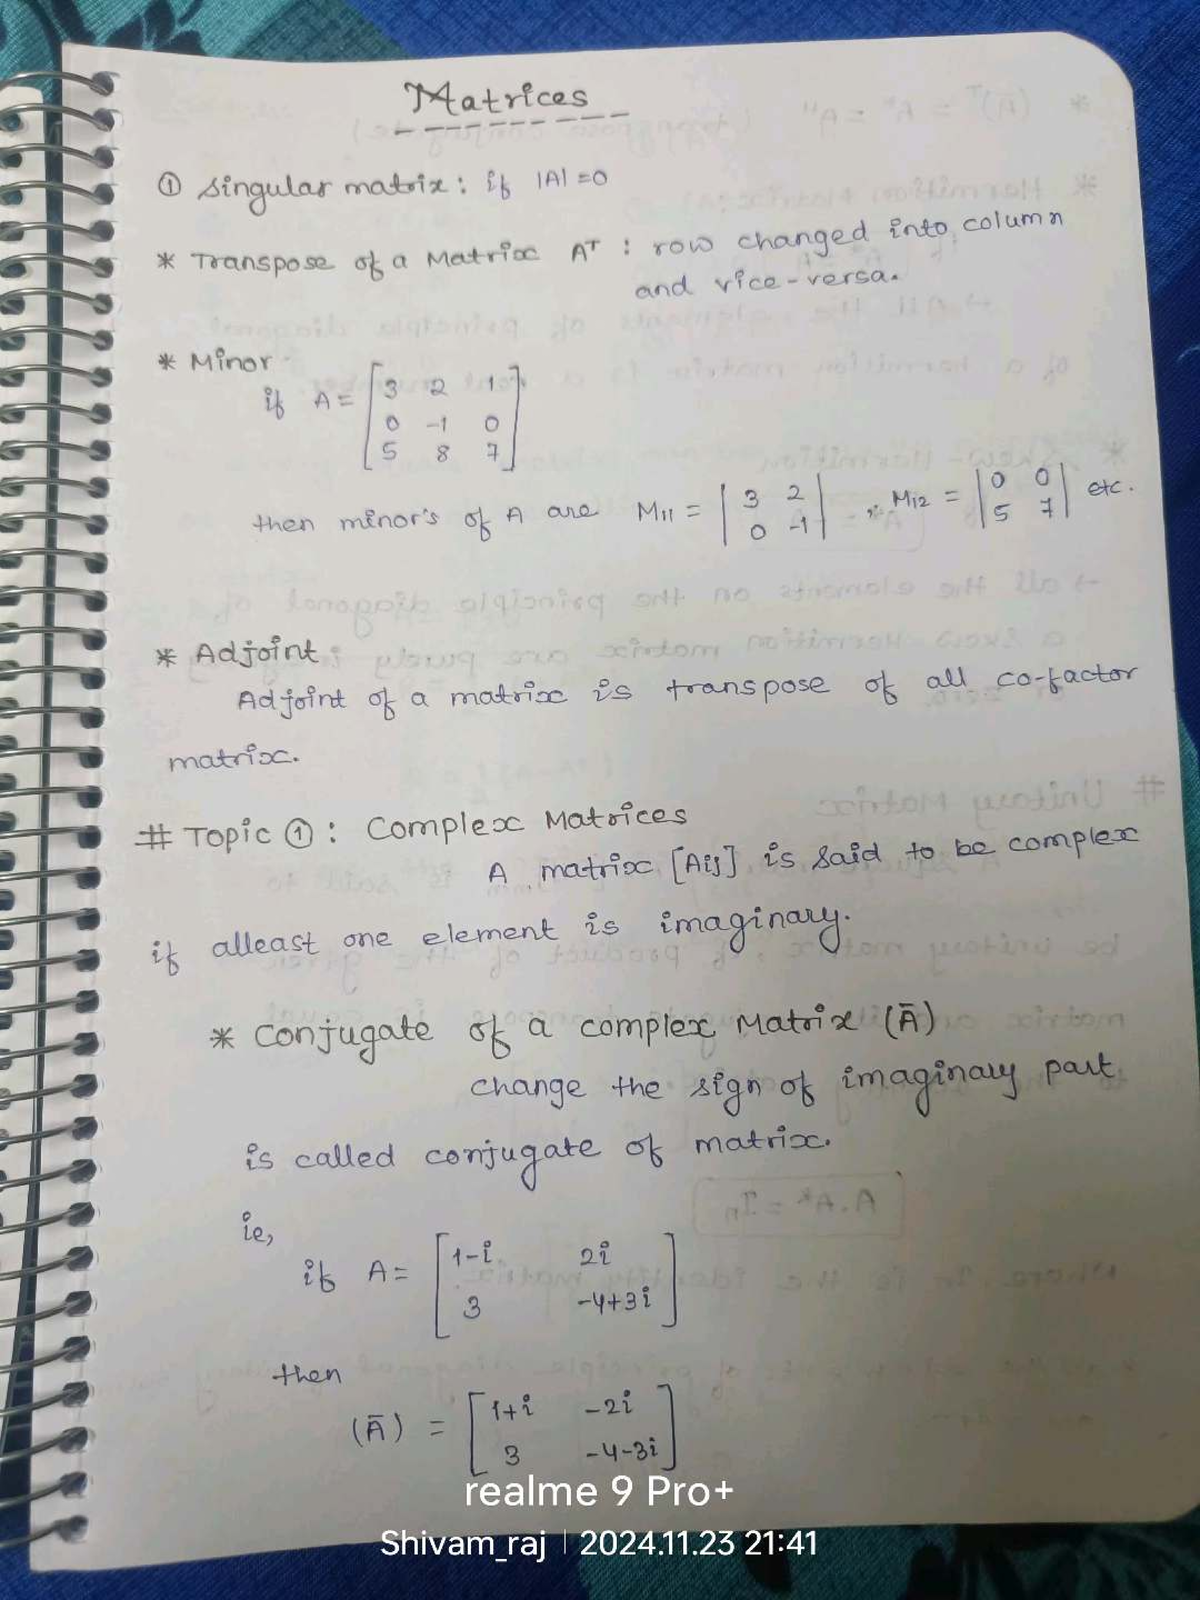 Matrices
① Singular matrix : if |A| = 0
* Transpose of a Matrix Aᵀ : row changed into column
and vice-versa.
* Minor
if A = [3 2 1
0 -1 0
5 8 7]
then minor's of A are M₁₁ = |3 2
0 -1| , M₁₂ = |0 0
5 7| etc.
* Adjoint
Adjoint of a matrix is transpose of all co-factor
matrix.
# Topic ① : Complex Matrices
A matrix [Aij] is said to be complex
if alleast one element is imaginary.
* Conjugate of a complex Matrix (Ā)
change the sign of imaginary part
is called conjugate of matrix.
ie,
if A = [1-i 2i
3 -4+3i]
then
(Ā) = [1+i -2i
3 -4-3i]
realme 9 Pro+
Shivam_raj | 2024.11.23 21:41